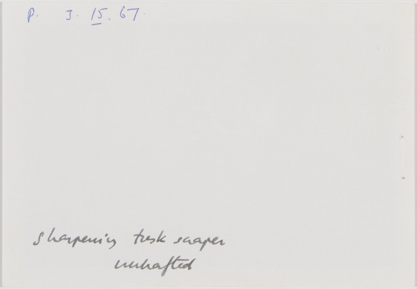 P. J. 15. 67.
sharpening tusk scraper
unhafted